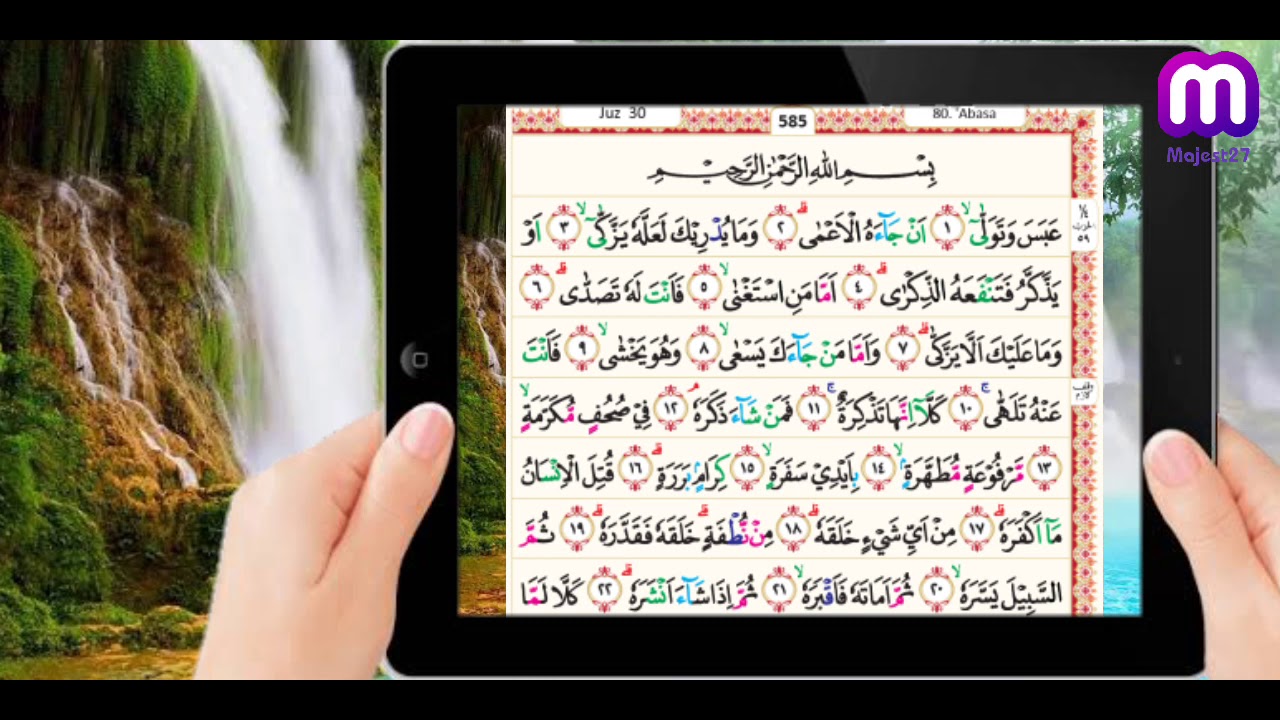 Majest27
Juz 30
585
80. 'Abasa
بِسْمِ اللّٰهِ الرَّحْمٰنِ الرَّحِيْمِ
عَبَسَ وَتَوَلّٰىٓۙ ١ اَنْ جَاۤءَهُ الْاَعْمٰىۗ ٢ وَمَا يُدْرِيْكَ لَعَلَّهٗ يَزَّكّٰىٓۙ ٣ اَوْ
يَذَّكَّرُ فَتَنْفَعَهُ الذِّكْرٰىۗ ٤ اَمَّا مَنِ اسْتَغْنٰىۙ ٥ فَاَنْتَ لَهٗ تَصَدّٰىۗ ٦
وَمَا عَلَيْكَ اَلَّا يَزَّكّٰىۗ ٧ وَاَمَّا مَنْ جَاۤءَكَ يَسْعٰىۙ ٨ وَهُوَ يَخْشٰىۙ ٩ فَاَنْتَ
عَنْهُ تَلَهّٰىۚ ١٠ كَلَّآ اِنَّهَا تَذْكِرَةٌۚ ١١ فَمَنْ شَاۤءَ ذَكَرَهٗۘ ١٢ فِيْ صُحُفٍ مُّكَرَّمَةٍۙ
١٣ مَّرْفُوْعَةٍ مُّطَهَّرَةٍۢۙ ١٤ بِاَيْدِيْ سَفَرَةٍۙ ١٥ كِرَامٍۢ بَرَرَةٍۗ ١٦ قُتِلَ الْاِنْسَانُ
مَآ اَكْفَرَهٗۗ ١٧ مِنْ اَيِّ شَيْءٍ خَلَقَهٗۗ ١٨ مِنْ نُّطْفَةٍۗ خَلَقَهٗ فَقَدَّرَهٗۗ ١٩ ثُمَّ
السَّبِيْلَ يَسَّرَهٗۙ ٢٠ ثُمَّ اَمَاتَهٗ فَاَقْبَرَهٗۙ ٢١ ثُمَّ اِذَا شَاۤءَ اَنْشَرَهٗۗ ٢٢ كَلَّا لَمَّا